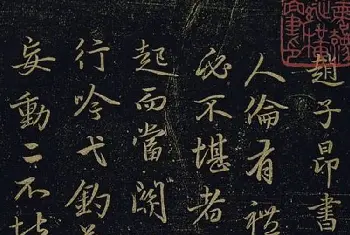 趙子昂書
人倫有禮
必不堪者
起而當關
行吟弋釣
妄動二不